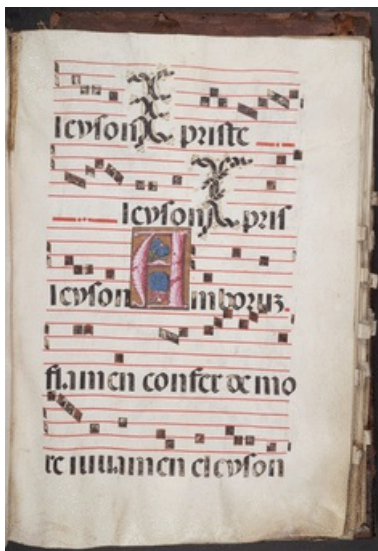 leyson Xpriste
leyson Xpris
leyson Amboruz.
flamen confer de mo
re iuuamen eleyson